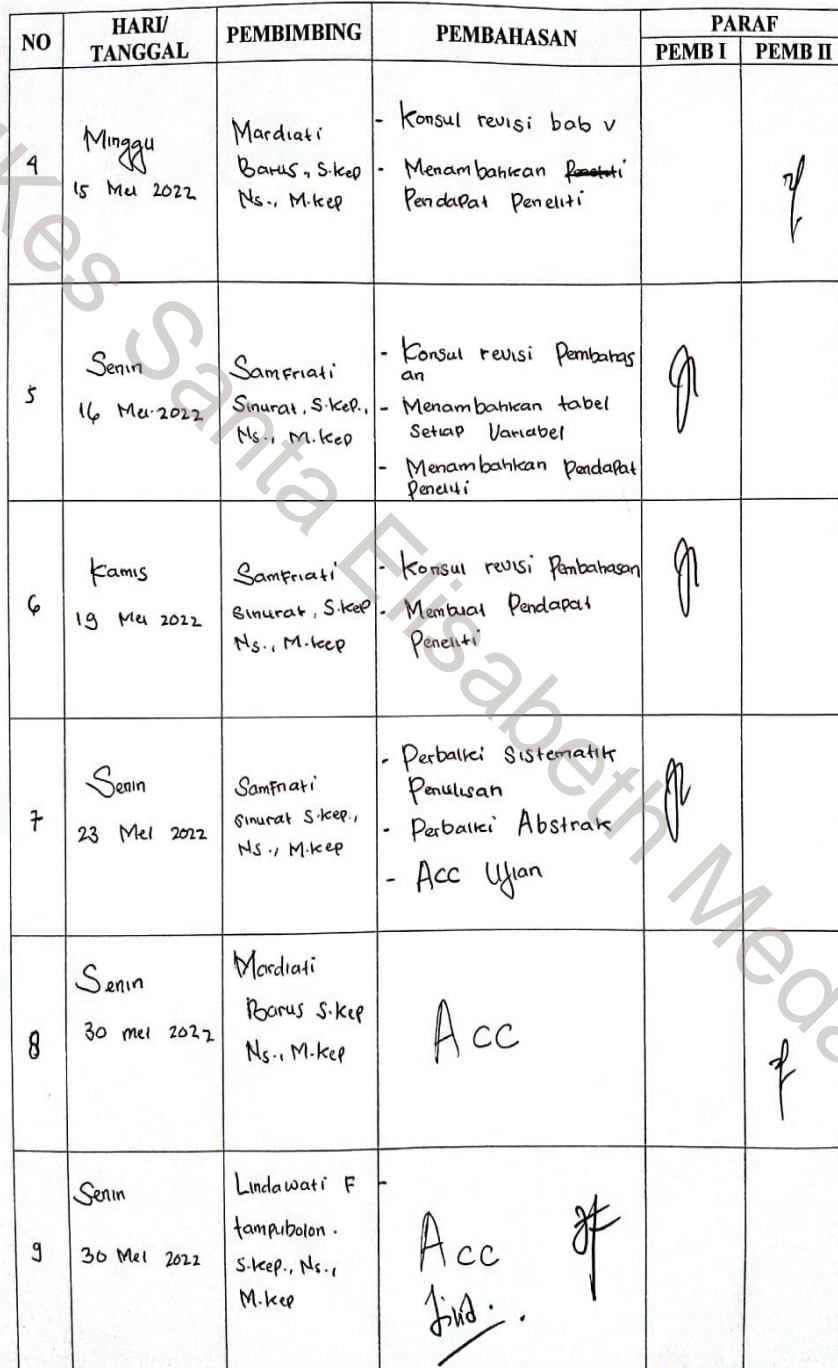 NO
HARI/
TANGGAL
PEMBIMBING
PEMBAHASAN
PARAF
PEMB I
PEMB II
4
Minggu
15 Mei 2022
Mardiati
Barus, S.Kep
Ns., M.Kep
- Konsul revisi bab V
- Menambahkan Peneliti
Pendapat Peneliti
5
Senin
16 Mei 2022
Samfriati
Sinurat, S.Kep.,
Ns., M.Kep
- Konsul revisi Pembahas
an
- Menambahkan tabel
Setiap Variabel
- Menambahkan Pendapat
Peneliti
6
Kamis
19 Mei 2022
Samfriati
Sinurat, S.Kep
Ns., M.Kep
- Konsul revisi Pembahasan
- Membuat Pendapat
Peneliti
7
Senin
23 Mei 2022
Samfriati
Sinurat S.Kep.,
Ns., M.Kep
- Perbaiki Sistematik
Penulisan
- Perbaiki Abstrak
- Acc Ujian
8
Senin
30 Mei 2022
Mardiati
Barus S.Kep
Ns., M.Kep
Acc
9
Senin
30 Mei 2022
Lindawati F
tampubolon.
S.Kep., Ns.,
M.Kep
-
Acc
kes Santa Elisabeth Meda